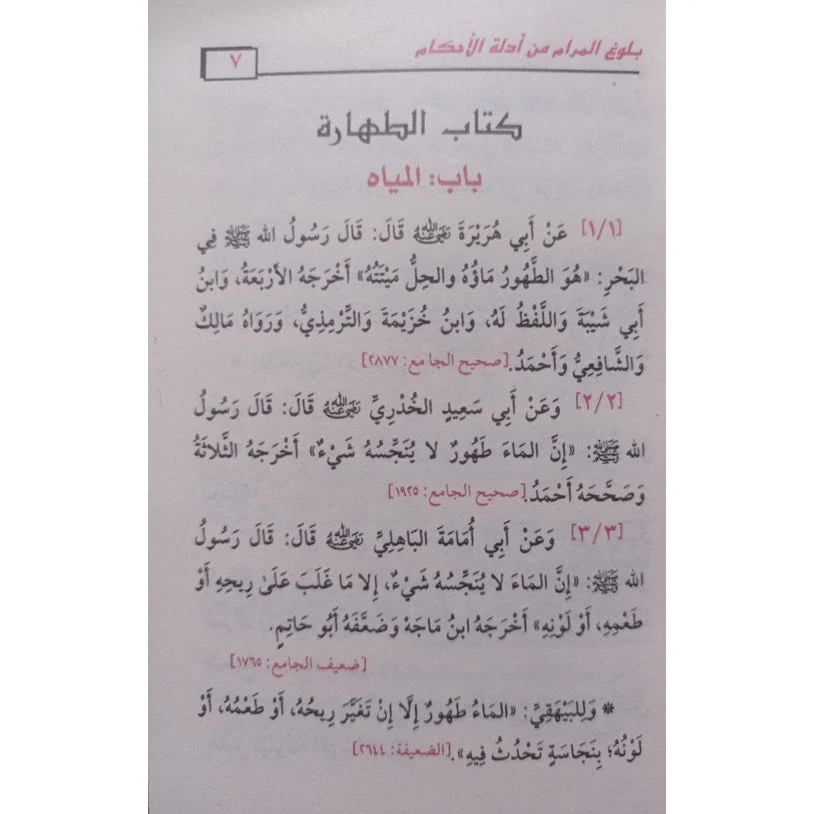 بلوغ المرام من أدلة الأحكام
٧
كتاب الطهارة
باب: المياه
[١/١] عَنْ أَبِي هُرَيْرَةَ رَضِيَ اللهُ عَنْهُ قَالَ: قَالَ رَسُولُ الله ﷺ فِي
البَحْرِ: «هُوَ الطَّهُورُ مَاؤُهُ والحِلُّ مَيْتَتُهُ» أَخْرَجَهُ الأَرْبَعَةُ، وَابنُ
أَبِي شَيْبَةَ وَاللَّفْظُ لَهُ، وَابنُ خُزَيْمَةَ وَالتِّرْمِذِيُّ، وَرَوَاهُ مَالِكٌ
وَالشَّافِعِيُّ وَأَحْمَدُ. [صحيح الجامع: ٢٨٧٧]
[٢/٢] وَعَنْ أَبِي سَعِيدٍ الخُدْرِيِّ رَضِيَ اللهُ عَنْهُ قَالَ: قَالَ رَسُولُ
الله ﷺ: «إِنَّ المَاءَ طَهُورٌ لا يُنَجِّسُهُ شَيْءٌ» أَخْرَجَهُ الثَّلاثَةُ
وَصَحَّحَهُ أَحْمَدُ. [صحيح الجامع: ١٩٢٥]
[٣/٣] وَعَنْ أَبِي أُمَامَةَ البَاهِلِيِّ رَضِيَ اللهُ عَنْهُ قَالَ: قَالَ رَسُولُ
الله ﷺ: «إِنَّ المَاءَ لا يُنَجِّسُهُ شَيْءٌ، إِلا مَا غَلَبَ عَلَىٰ رِيحِهِ أَوْ
طَعْمِهِ، أَوْ لَوْنِهِ» أَخْرَجَهُ ابنُ مَاجَهْ وَضَعَّفَهُ أَبُو حَاتِمٍ.
[ضعيف الجامع: ١٧٦٥]
* وَلِلبَيْهَقِيِّ: «المَاءُ طَهُورٌ إِلَّا إِنْ تَغَيَّرَ رِيحُهُ، أَوْ طَعْمُهُ، أَوْ
لَوْنُهُ؛ بِنَجَاسَةٍ تَحْدُثُ فِيهِ». [الضعيفة: ٢٦٤٤]